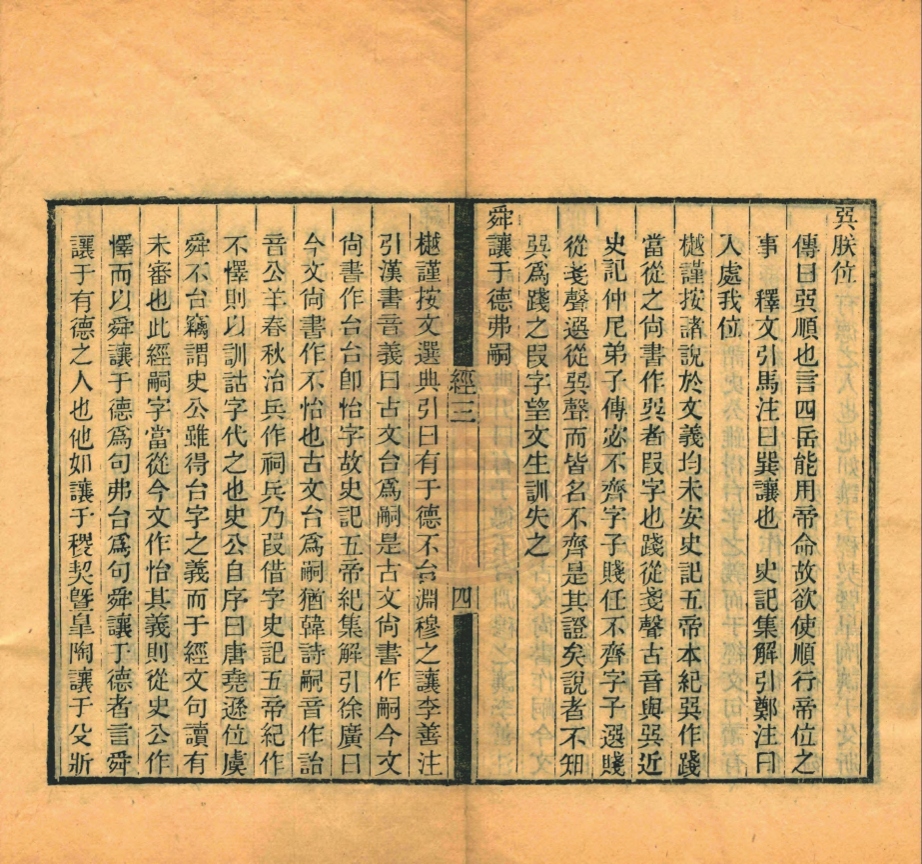 巽朕位
傳曰巽順也言四岳能用帝命故欲使順行帝位之
事　釋文引馬注曰巽讓也　史記集解引鄭注曰
入處我位
樾謹按諸說於文義均未安史記五帝本紀巽作踐
當從之尙書作巽者叚字也踐從戔聲古音與巽近
史記仲尼弟子傳宓不齊字子賤任不齊字子選賤
從戔聲選從巽聲而皆名不齊是其證矣說者不知
巽爲踐之叚字望文生訓失之
舜讓于德弗嗣
經三
四
樾謹按文選典引曰有于德不台淵穆之讓李善注
引漢書音義曰古文台爲嗣是古文尙書作嗣今文
尙書作台台卽怡字故史記五帝紀集解引徐廣曰
今文尙書作不怡也古文台爲嗣猶韓詩嗣音作詒
音公羊春秋治兵作祠兵乃叚借字史記五帝紀作
不懌則以訓詁字代之也史公自序曰唐堯遜位虞
舜不台竊謂史公雖得台字之義而于經文句讀有
未審也此經嗣字當從今文作怡其義則從史公作
懌而以舜讓于德爲句弗台爲句舜讓于德者言舜
讓于有德之人也他如讓于稷契曁皐陶讓于殳斨